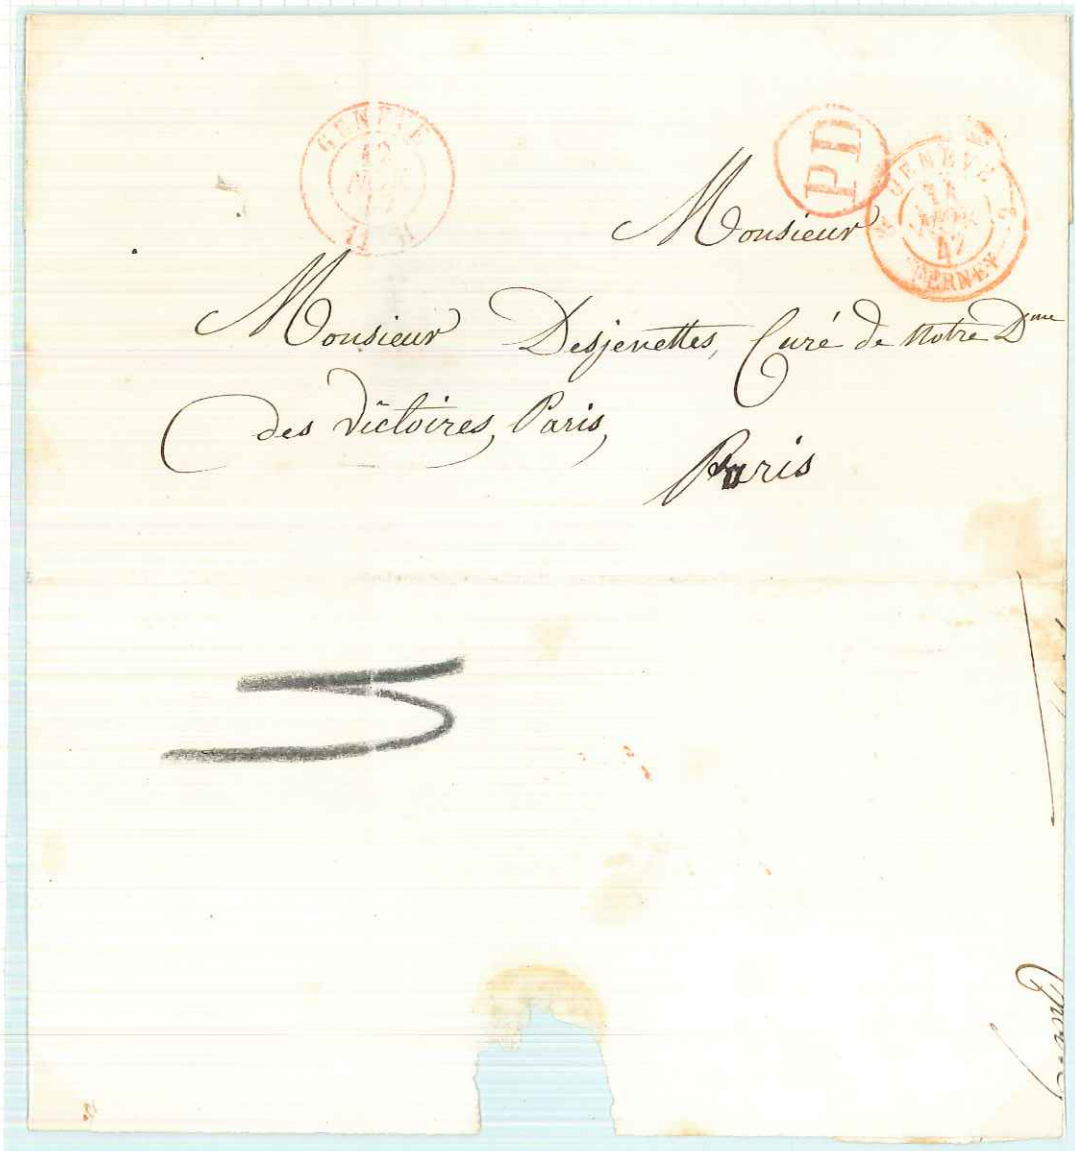 GENÈVE
PD
GENÈVE
FERNEY
Monsieur
Monsieur Desjenettes, Curé de Notre Dme
des Victoires, Paris,
Paris